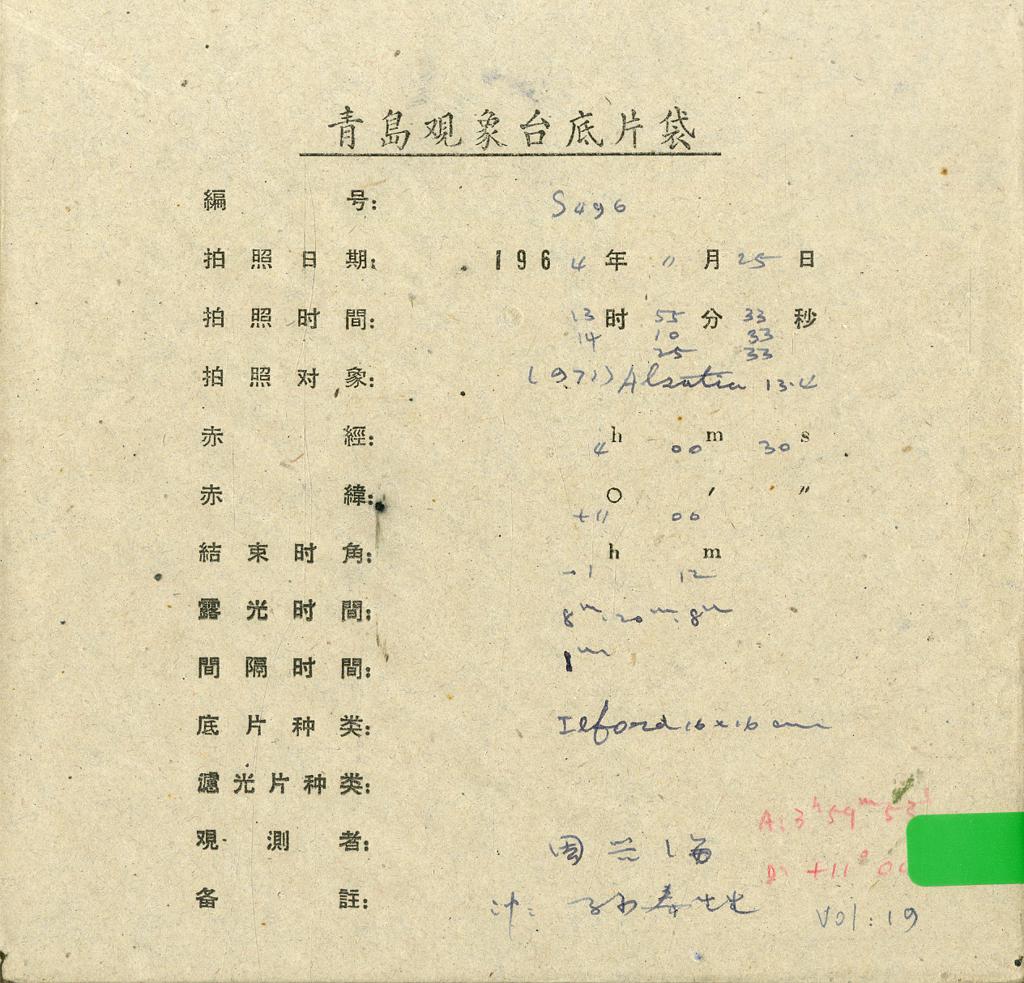 青島观象台底片袋
編号: S496
拍照日期: 1964年11月25日
拍照时間: 13时55分33秒
14 10 33
25 33
拍照对象: (971) Alsatia 13.4
赤經: 4h 00m 30s
赤緯: +11° 00′ ″
結束时角: -1h 12m
露光时間: 8m. 20m. 8m
間隔时間: 1m
底片种类: Ilford 16×16 cm
濾光片种类:
A: 3h 59m 53
观測者: 周兴海
D: +11° 00
备註: 孙寿
Vol: 19